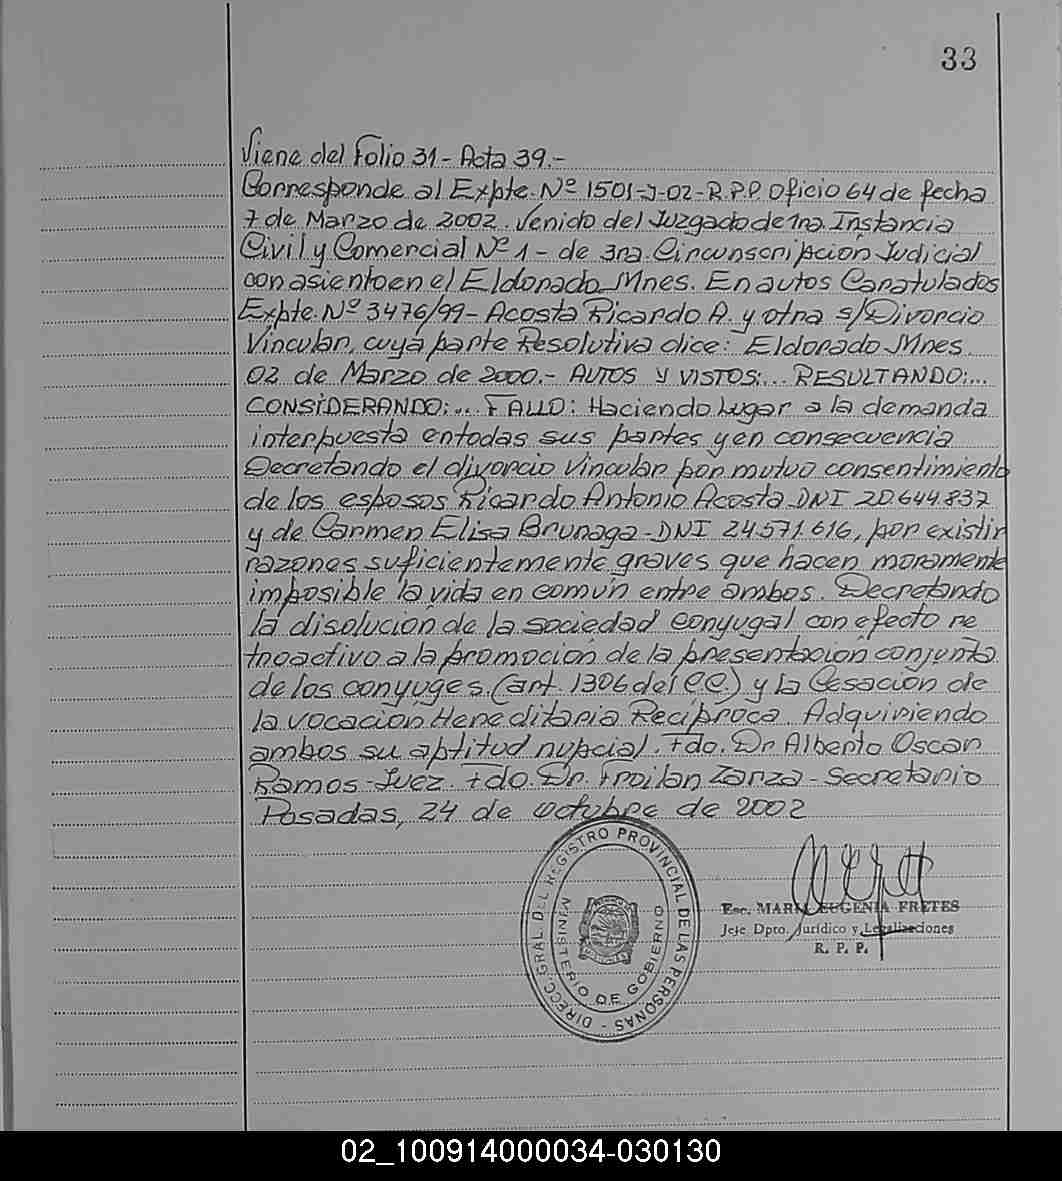 33
Viene del Folio 31 - Acta 39.-
Corresponde al Expte. Nº 1501-J-02-R.P.P. Oficio 64 de fecha
7 de Marzo de 2002. Venido del Juzgado de 1ra. Instancia
Civil y Comercial Nº 1 - de 3ra Circunscripción Judicial
con asiento en el Eldorado Mnes. En autos Caratulados
Expte. Nº 3476/99 - Acosta Ricardo A. y otra s/Divorcio
Vincular, cuya parte Resolutiva dice: Eldorado Mnes.
02 de Marzo de 2000.- AUTOS Y VISTOS:... RESULTANDO:...
CONSIDERANDO:... FALLO: Haciendo Lugar a la demanda
interpuesta en todas sus partes y en consecuencia
Decretando el divorcio vincular por mutuo consentimiento
de los esposos Ricardo Antonio Acosta DNI 20.644.837
y de Carmen Elisa Brunaga - DNI 24.571.616, por existir
razones suficientemente graves que hacen moramente
imposible la vida en común entre ambos. Decretando
la disolución de la sociedad Conyugal con efecto re
troactivo a la promoción de la presentación conjunta
de los conyuges. (art. 1306 del C.C.) y la Cesación de
la vocación Hereditaria Recíproca. Adquiriendo
ambos su aptitud nupcial. Fdo. Dr Alberto Oscar
Ramos - Juez. Fdo. Dr. Froilan Zarza - Secretario
Posadas, 24 de octubre de 2002
DIRECC. GRAL. DEL REGISTRO PROVINCIAL DE LAS PERSONAS -
MINISTERIO DE GOBIERNO
Esc. MARIA EUGENIA FRETES
Jefe Dpto. Jurídico y Legalizaciones
R. P. P.
02_100914000034-030130